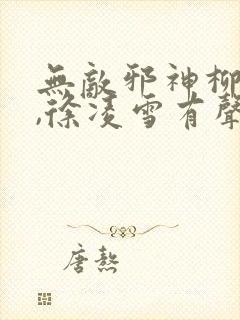 無敵邪神柳
,徐凌雪有聲
唐熬